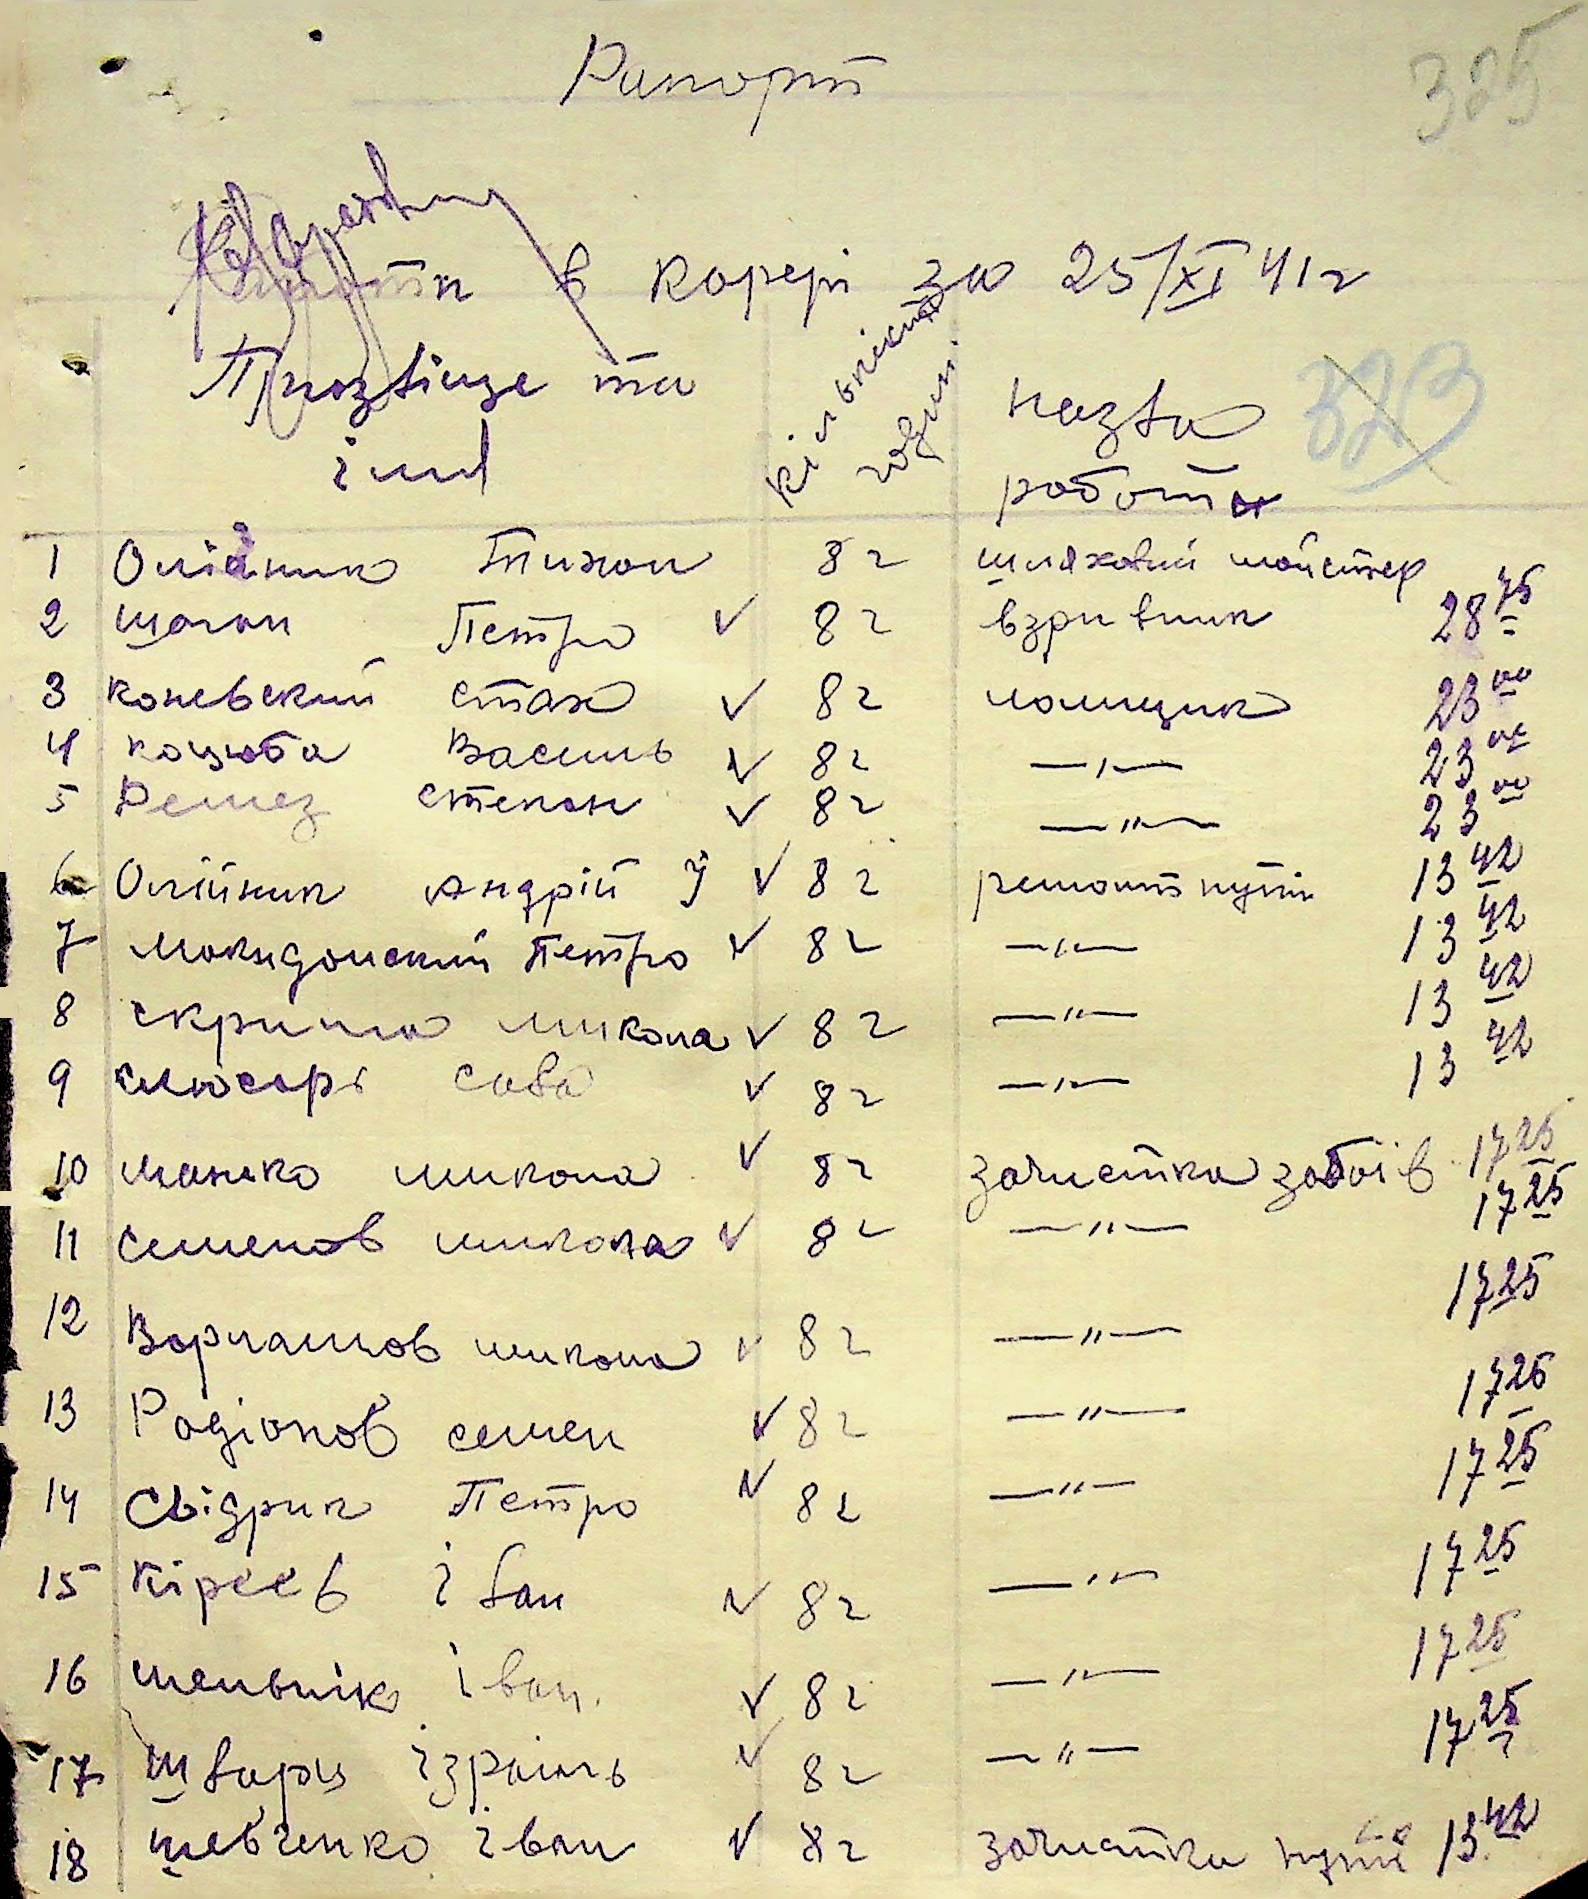 Рапорт
325
роботи в карері за 25/XI 41 г
Прозвіще та імя
кількість годин
назва роботи
323
1 Олійник Тихон 8 г шляховий майстер
2 Шаган Петро ✓ 8 г взривник 28 75
3 Коневский Стах ✓ 8 г ломщик 23 00
4 Коцюба Василь ✓ 8 г —〃— 23 00
5 Ремез Степан ✓ 8 г —〃— 23 00
6 Олійник Андрій У ✓ 8 г ремонт путі 13 42
7 Македонский Петро ✓ 8 г —〃— 13 42
8 Скрипа Микола ✓ 8 г —〃— 13 42
9 Слюсарь Сава ✓ 8 г —〃— 13 42
10 Манько Микола ✓ 8 г зачистка забоїв 17 25
11 Семенов Микола ✓ 8 г —〃— 17 25
12 Варламов Микола ✓ 8 г —〃— 17 25
13 Радіонов Семен ✓ 8 г —〃— 17 25
14 Свідрик Петро ✓ 8 г —〃— 17 25
15 Кірєєв Іван ✓ 8 г —〃— 17 25
16 Мельнік Іван ✓ 8 г —〃— 17 25
17 Шварц Ізраіль ✓ 8 г —〃— 17 25
18 Шевченко Іван ✓ 8 г зачистка путі 13 42